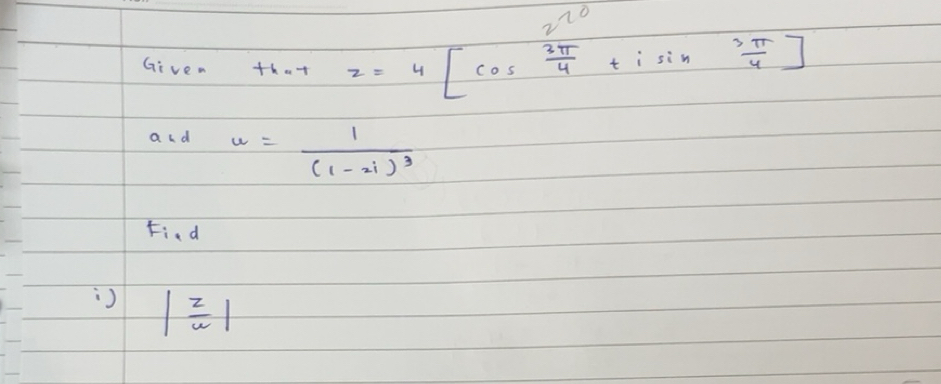 220
Given that z = 4 [ cos 3π/4 + i sin 3π/4 ]
and w = 1/(1 - 2i)³
Find
i) |z/w|